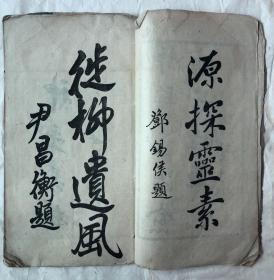 源探靈素
鄧錫侯題
徙柳遺風
尹昌衡題